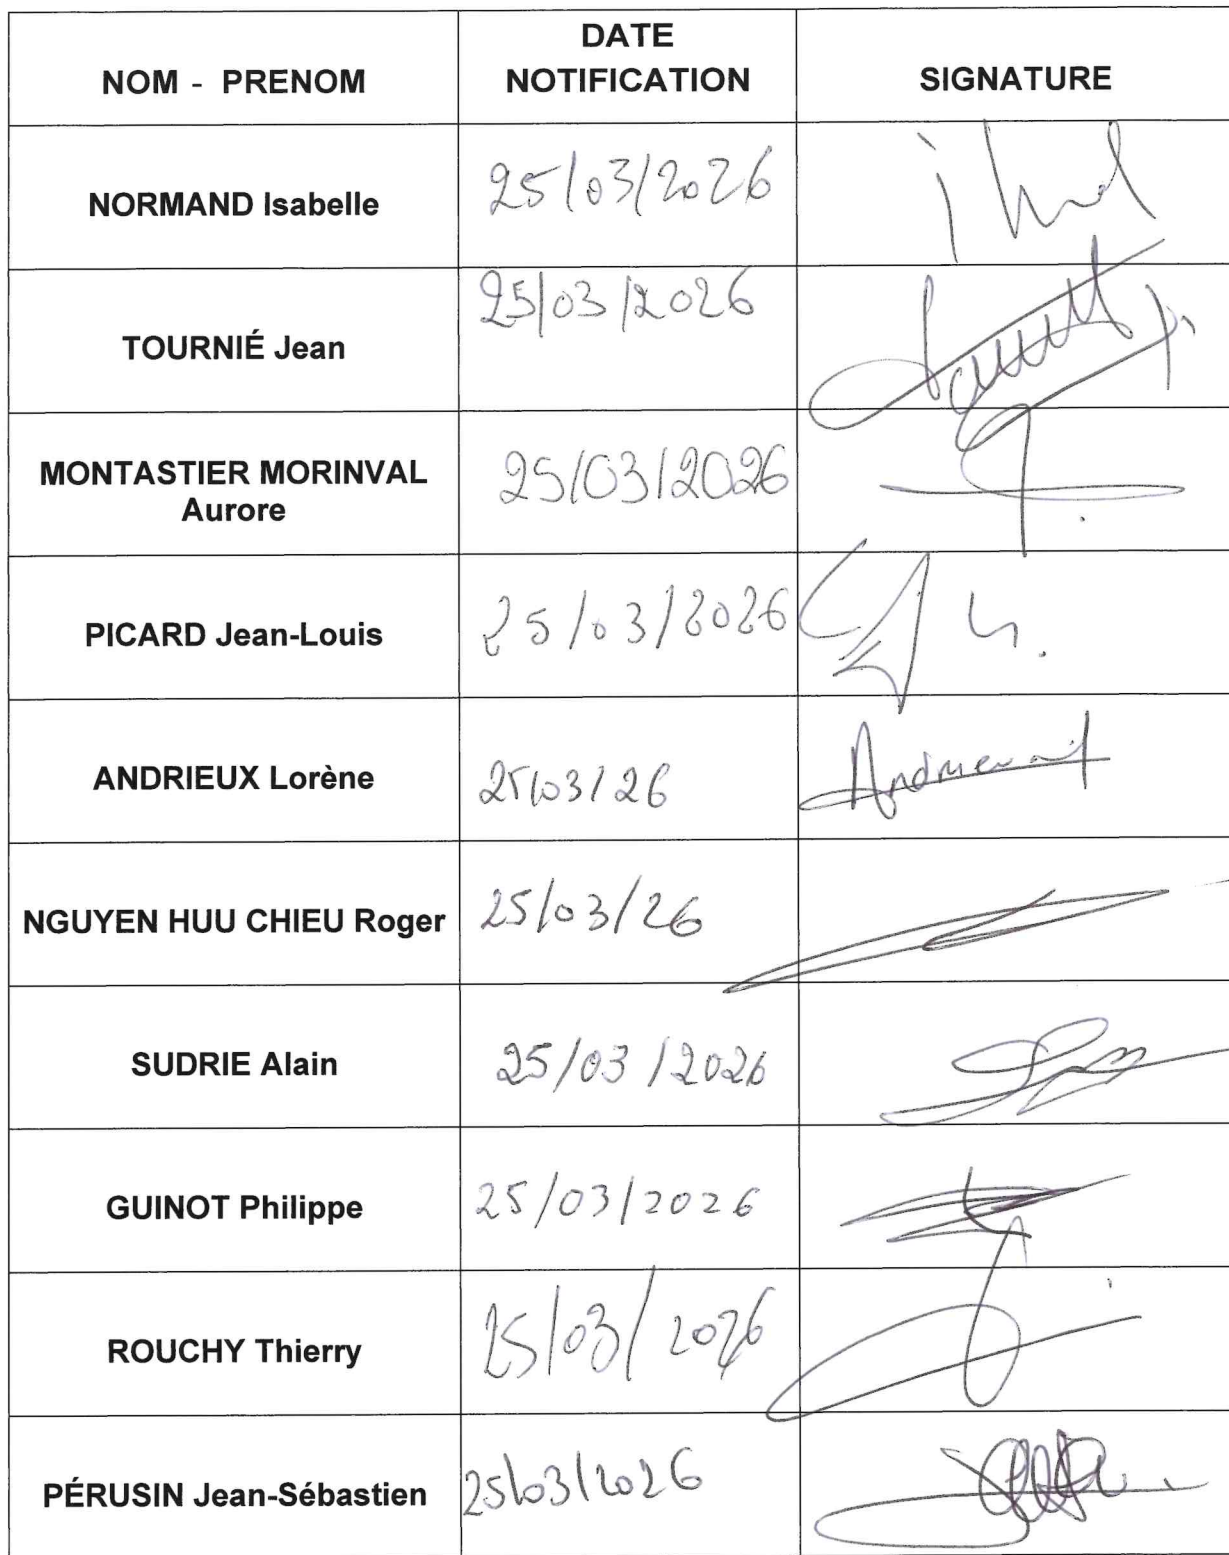 NOM - PRENOM
DATE
NOTIFICATION
SIGNATURE
NORMAND Isabelle
25/03/2026
TOURNIÉ Jean
25/03/2026
MONTASTIER MORINVAL
Aurore
25/03/2026
PICARD Jean-Louis
25/03/2026
ANDRIEUX Lorène
25/03/26
NGUYEN HUU CHIEU Roger
25/03/26
SUDRIE Alain
25/03/2026
GUINOT Philippe
25/03/2026
ROUCHY Thierry
25/03/2026
PÉRUSIN Jean-Sébastien
25/03/2026